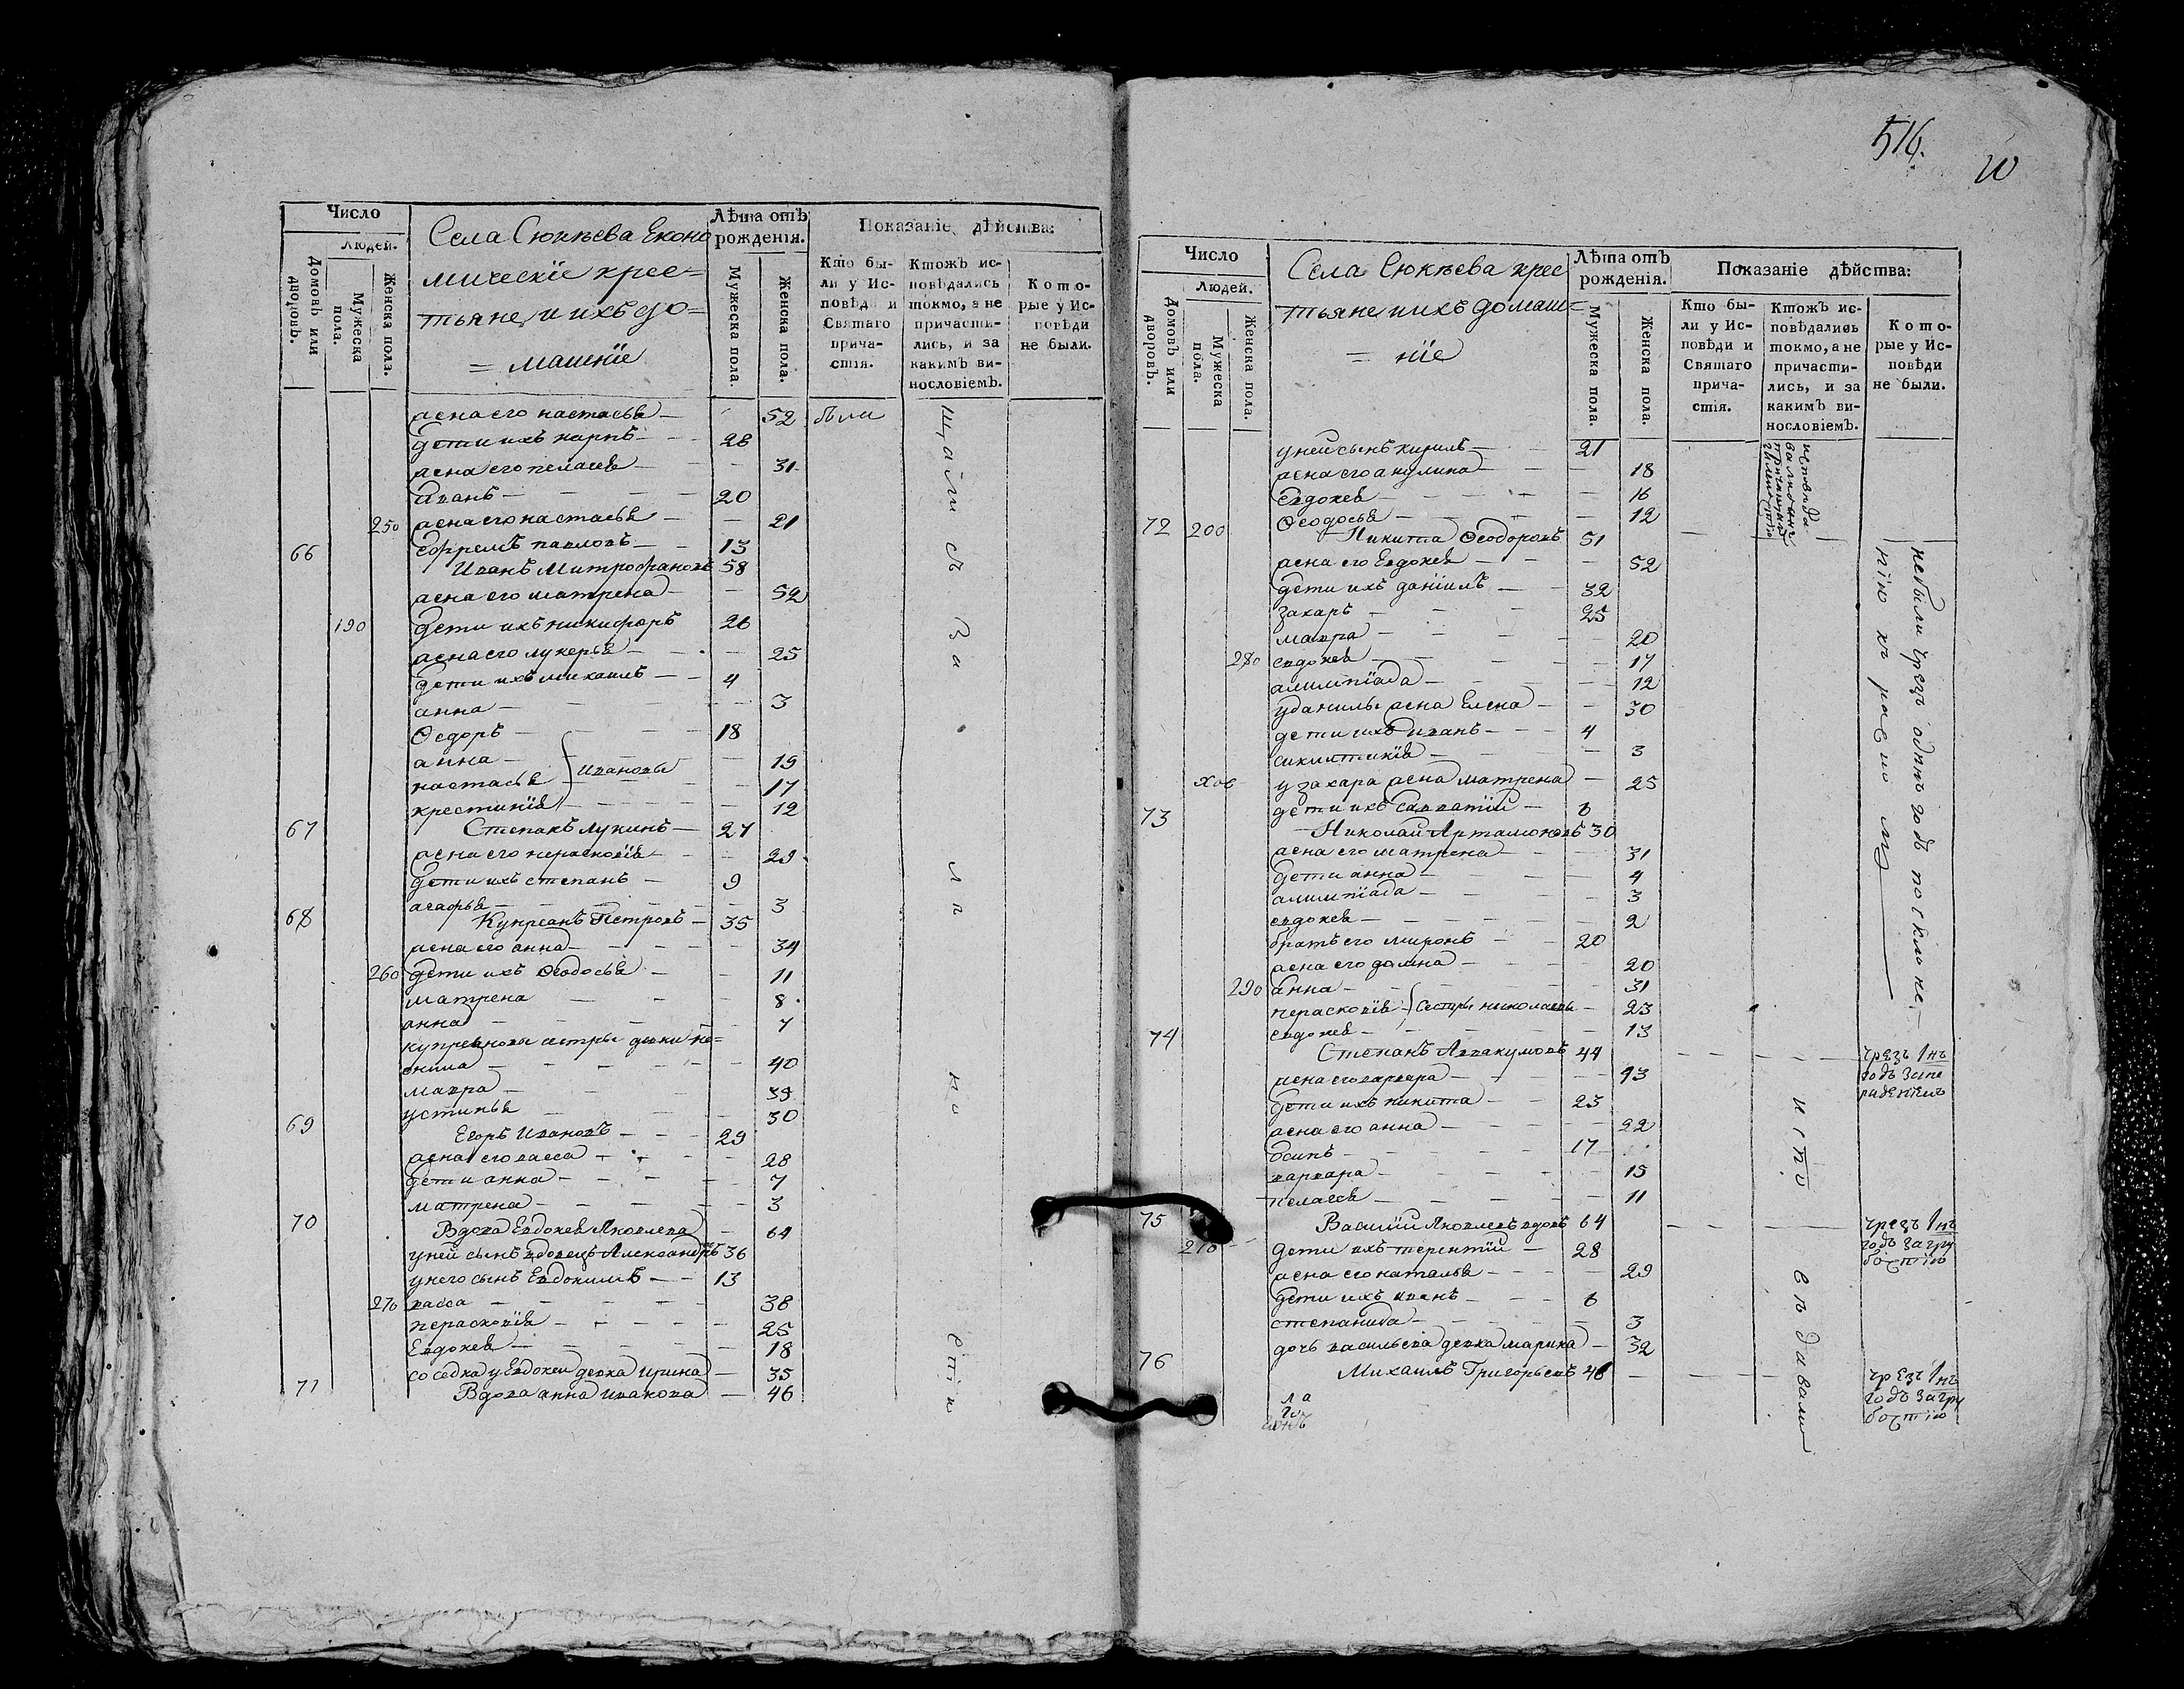 Число
Людей.
Домовъ или дворовъ.
Мужеска пола.
Женска пола.
Села Сюкѣева Еконо
мическiе крес=
тьяне, и ихъ до=
= машнiе
Лѣта отъ рожденiя.
Мужеска пола.
Женска пола.
Показанiе дѣйства:
Кто бы-
ли у Ис-
повѣди и
Святаго
прича-
стiя.
Ктожъ ис-
повѣдались
токмо, а не
причасти-
лись, и за
какимъ ви-
нословiемъ.
Кото-
рые у Ис-
повѣди
не были.
жена его настасья — 52 были
дети ихъ карпъ — 28
жена его пелагея — 31
иванъ — 20
250 жена его настасья — 21
ефремъ павловъ — 13
66 Иванъ Митрофановъ 58
жена его матрена — 52
190 дети ихъ никифоръ 26
жена его лукерья — 25
дети ихъ михаилъ — 4
анна — 3
Ѳедоръ — 18
анна — 19
настасья } Ивановы — 17
крестинiя — 12
67 Степанъ лукинъ — 27
жена его перасковiя — 29
дети ихъ степанъ — 9
агафья — 3
68 Купреанъ Петровъ — 35
жена его анна — 34
260 дети ихъ Ѳеодосья — 11
матрена — 8
анна — 7
купреановы сестры девки не=
онила — 40
мавра — 39
устинья — 30
69 Егоръ Ивановъ — 29
жена его васса — 28
дети анна — 7
матрена — 3
70 Вдова Евдокея Яковлева — 64
у ней сынъ вдовецъ Александръ 36
у него сынъ Евдокимъ — 13
270 васса — 38
перасковiя — 25
Евдокея — 18
соседка у Евдокеи девка ирина — 35
71 Вдова анна иванова — 46
516.
10
Число
Людей.
Домовъ или дворовъ.
Мужеска пола.
Женска пола.
Села Сюкѣева крес
тьяне и ихъ домаш=
= нiе
Лѣта отъ рожденiя.
Мужеска пола.
Женска пола.
Показанiе дѣйства:
Кто бы-
ли у Ис-
повѣди и
Святаго
прича-
стiя.
Ктожъ ис-
повѣдались
токмо, а не
причасти-
лись, и за
какимъ ви-
нословiемъ.
Кото-
рые у Ис-
повѣди
не были.
у ней сынъ кирилъ — 21
жена его акулина — 18
Евдокея — 16
Ѳеодосья — 12
72 200 Никита Ѳеодоровъ 51
жена его Евдокея — 52
дети ихъ данiилъ — 32
захаръ — 25
мавра — 20
280 евдокея — 17
алимпiада — 12
у данилы жена Елена — 30
дети ихъ иванъ — 4
3
у захара жена матрена — 25
дети ихъ савватiй — 6
73 Николай Артамоновъ 30
жена его матрена — 31
дети анна — 4
алимпiада — 3
евдокея — 2
братъ его миронъ — 20
жена его домна — 20
290 анна — 31
перасковiя } сестры николаевы — 23
евдокея — 13
74 Степанъ Аввакумовъ 44 чрезъ 1нъ
годъ за не
раденiемъ
жена его варвара — 43
дети ихъ никита — 23
жена его анна — 22
осипъ — 17
варвара — 15
пелагея — 11
75 Василiй Яковлевъ вдовъ 64 чрезъ 1нъ
годъ за гру
бостiю
210 дети ихъ терентiй — 28
жена его наталья — 29
дети ихъ иванъ — 6
степанида — 3
дочь васильева девка марина — 32
76 Михаилъ Григорьевъ 46 чрезъ 1нъ
годъ за гру
бостiю